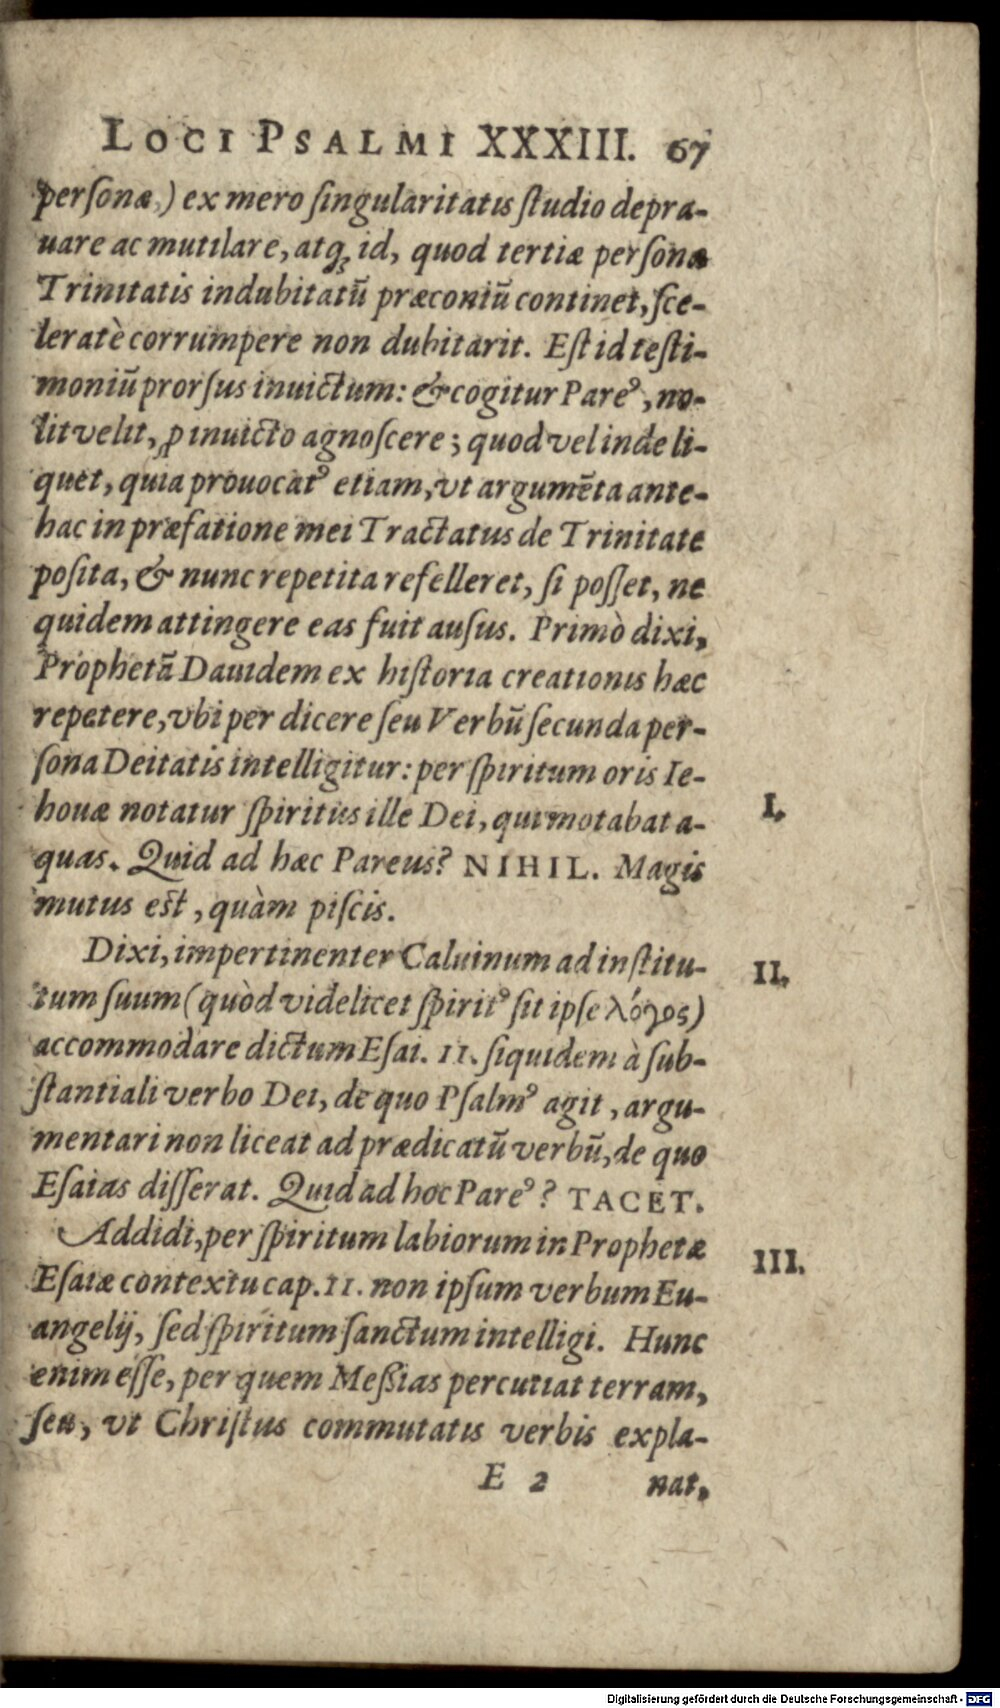 LOCI PSALMI XXXIII. 67
personæ,) ex mero singularitatis studio depra-
uare ac mutilare, atq́ꝫ id, quod tertiæ personæ
Trinitatis indubitatũ præconiũ continet, sce-
leratè corrumpere non dubitarit. Est id testi-
moniũ prorsus inuictum: & cogitur Pareꝰ, no-
lit velit, ꝓ inuicto agnoscere; quod vel inde li-
quet, quia prouocatꝰ etiam, vt argumẽta ante-
hac in præfatione mei Tractatus de Trinitate
posita, & nunc repetita refelleret, si posset, ne
quidem attingere eas fuit ausus. Primò dixi,
Prophetã Dauidem ex historia creationis hæc
repetere, vbi per dicere seu Verbũ secunda per-
sona Deitatis intelligitur: per spiritum oris Ie-
houæ notatur spiritus ille Dei, qui motabat a-
I.
quas. Quid ad hæc Pareus? NIHIL. Magis
mutus est, quàm piscis.
Dixi, impertinenter Caluinum ad institu-
II.
tum suum (quòd videlicet spiritꝰ sit ipse λόγος)
accommodare dictum Esai. 11. siquidem à sub-
stantiali verbo Dei, de quo Psalmꝰ agit, argu-
mentari non liceat ad prædicatũ verbũ, de quo
Esaias disserat. Quid ad hoc Pareꝰ? TACET.
Addidi, per spiritum labiorum in Prophetæ
III.
Esaiæ contextu cap. 11. non ipsum verbum Eu-
angelij, sed spiritum sanctum intelligi. Hunc
enim esse, per quem Messias percutiat terram,
seu, vt Christus commutatis verbis expla-
E 2 nat,
Digitalisierung gefördert durch die Deutsche Forschungsgemeinschaft - DFG